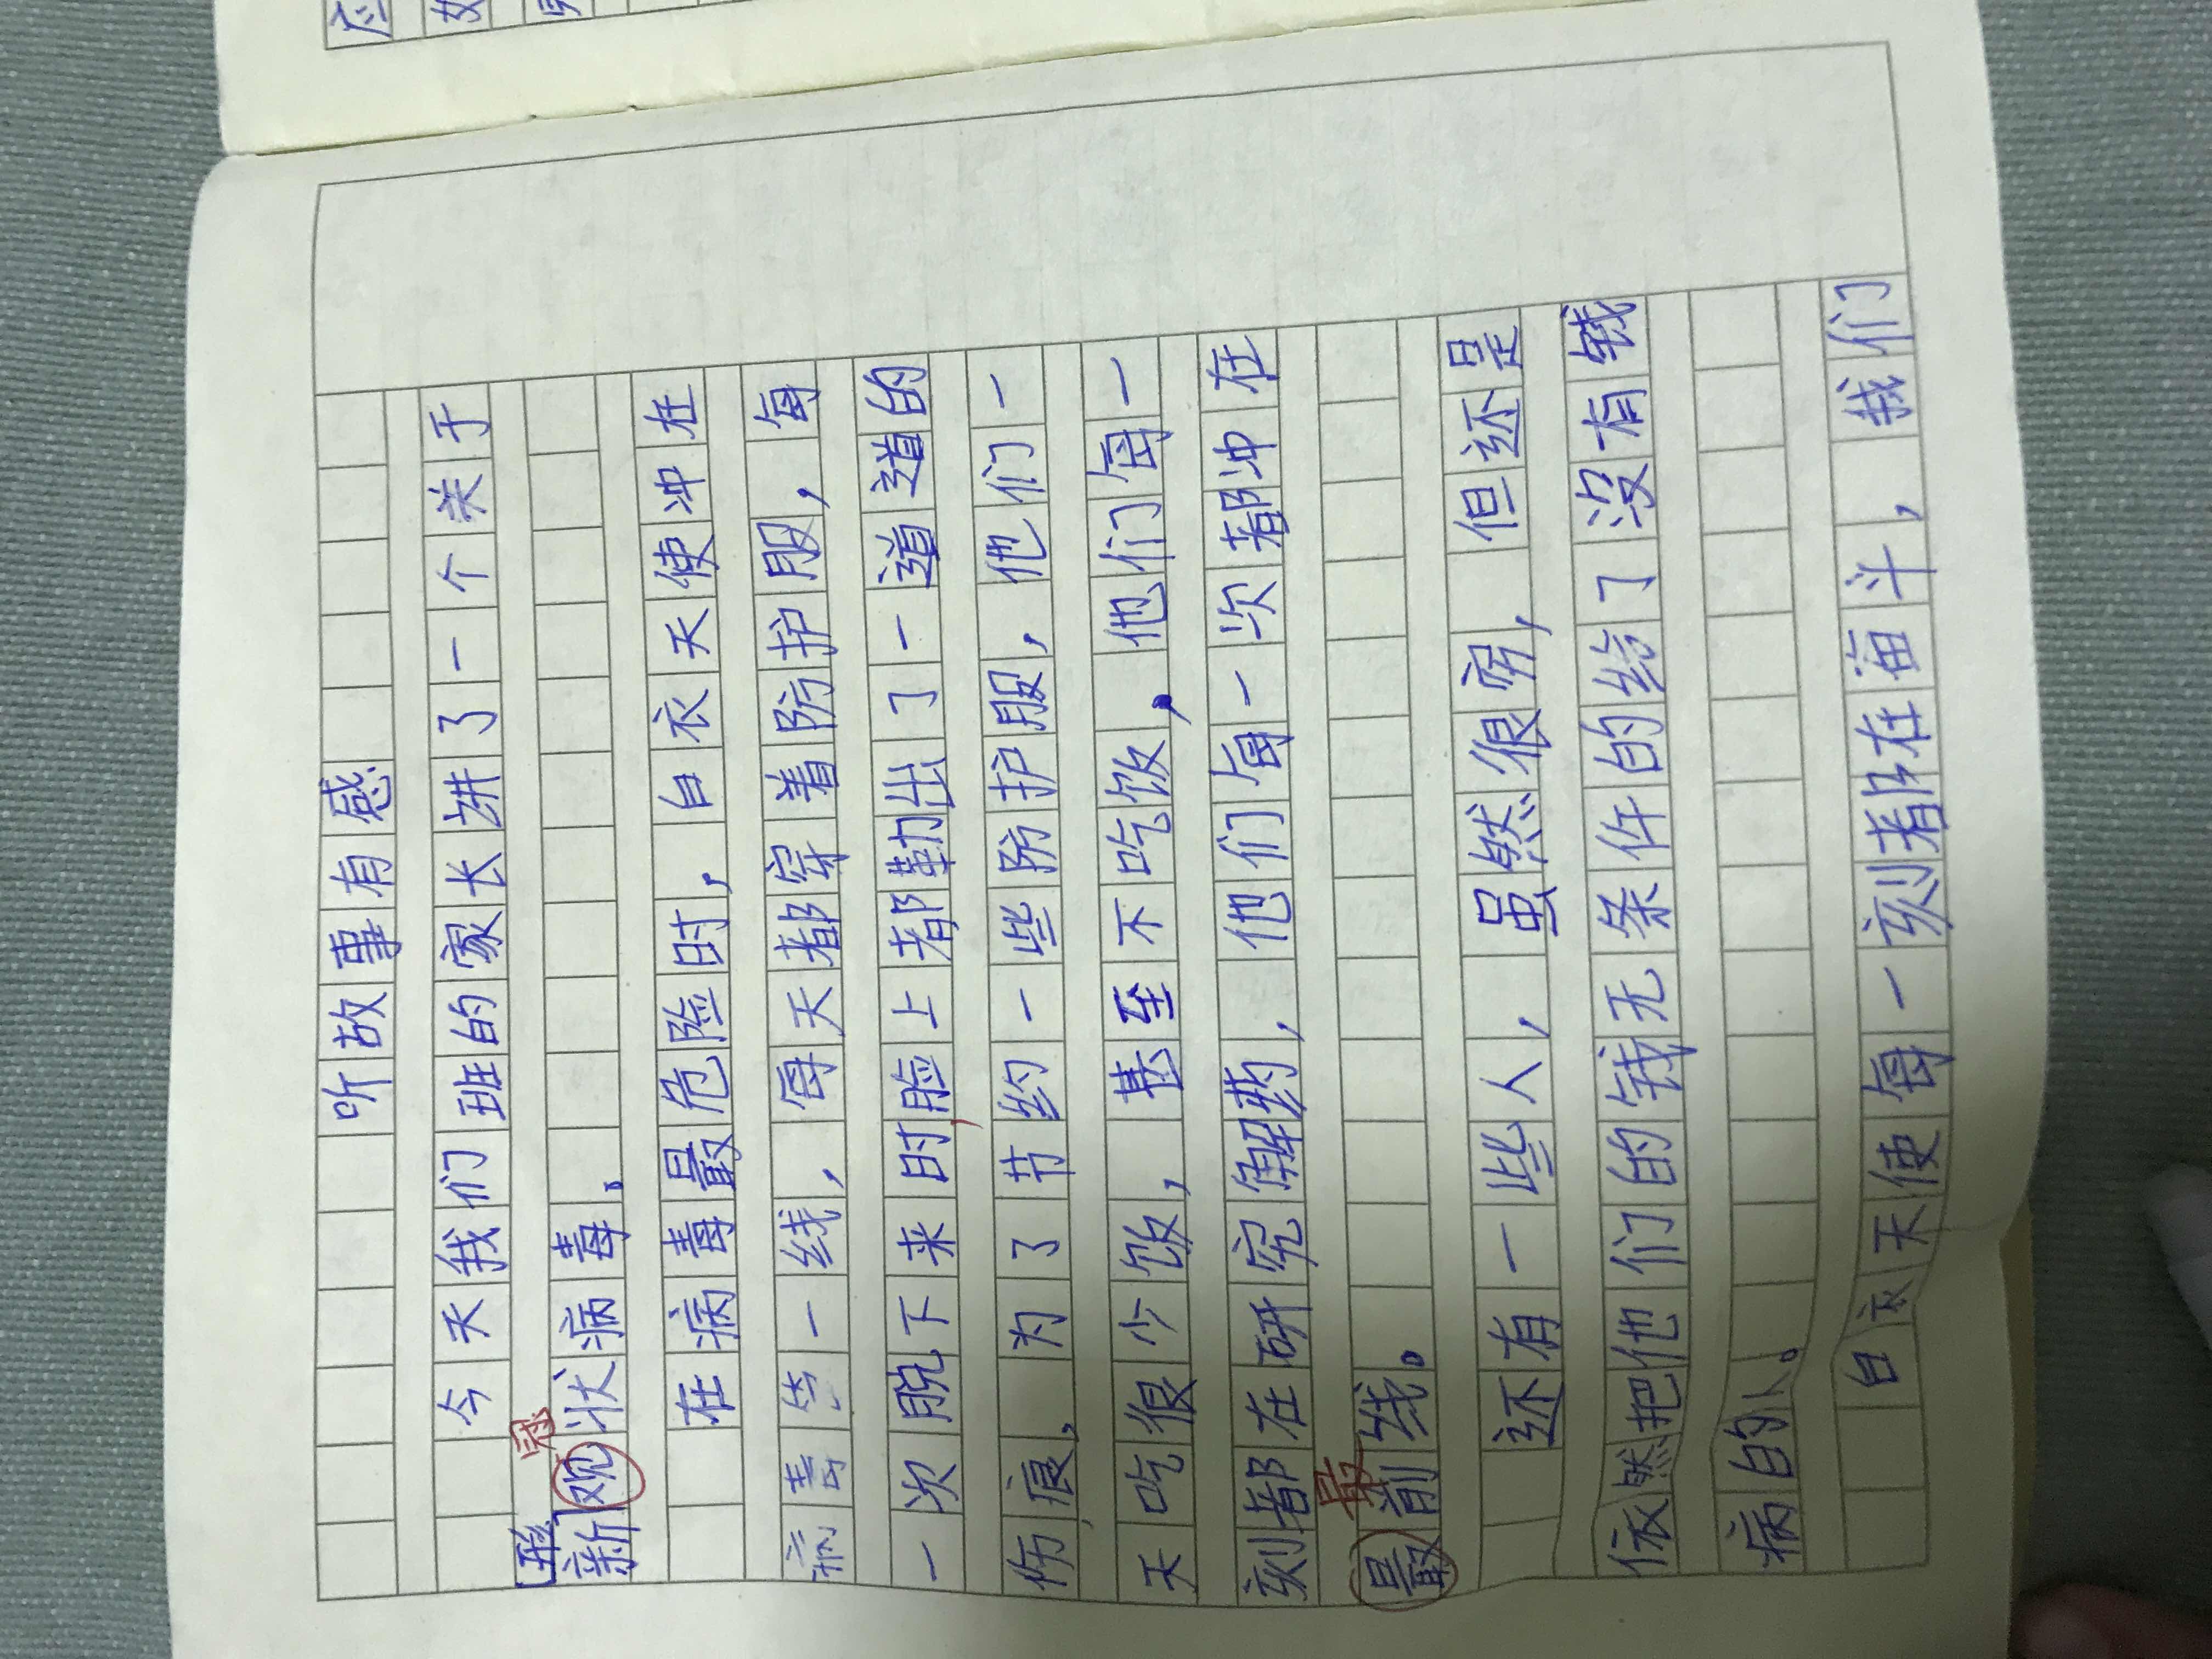 听故事有感
今天我们班的家长讲了一个关于
冠
新观状病毒。
在病毒最危险时，白衣天使冲在
病毒第一线，每天都穿着防护服，每
一次脱下来时脸上都勒出了一道道的
伤痕。为了节约一些防护服，他们一
天吃很少饭，甚至不吃饭，他们每一
刻都在研究解药，他们每一次都冲在
最
最前线。
还有一些人，虽然很穷，但还是
依然把他们的钱无条件的给了没有钱
病的人。
白衣天使每一刻都在奋斗，我们